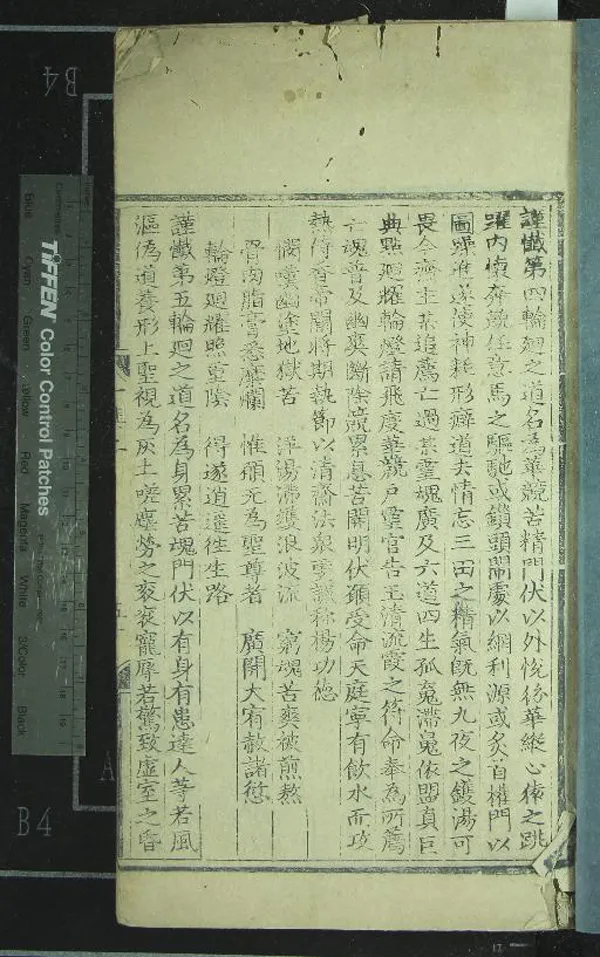 謹懺第四輪迴之道名為華競苦精門伏以外悅紛華縱心猿之跳
躍內懷奔競任意馬之驅馳或鎖頭鬧處以網利源或炙首權門以
圖躁進遂使神耗形癃道夫情忘三田之精氣既無九夜之鑊湯可
畏今齋主某追薦亡過某靈魂廣及六道四生孤魂滯魄依盟真巨
典點迴耀輪燈請飛度華競戶靈官告玉清流霞之符命奉為所薦
亡魂普及幽爽斷除競累息苦開明伏願受命天庭寧有飲水而攻
熱侍香帝闕將期執節以清齋法眾虔誠稱揚功德
憫靈幽塗地獄苦 萍湯沸鑊浪波流 窮魂苦爽被煎熬
骨肉脂膏悉糜爛 惟願元為聖尊者 廣開大宥赦諸愆
輪燈迴耀照重陰 得遂道遙徃生路
謹懺第五輪迴之道名為身累苦魂門伏以有身有患達人等若風
漚偽道養形上聖視為灰土嗟塵勞之袞袞寵辱若驚致虛室之昏
TiFFEN Color Control Patches
Blue
Cyan
Green
Yellow
Red
Magenta
White
3/Color
Black
B4
B4
A